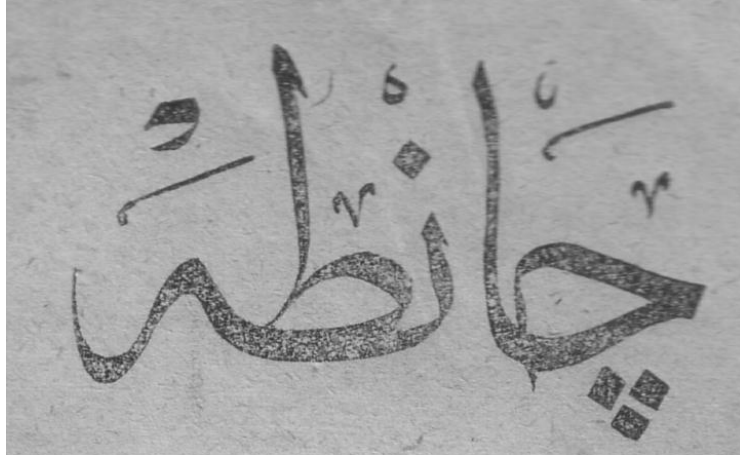 چَانْطَه